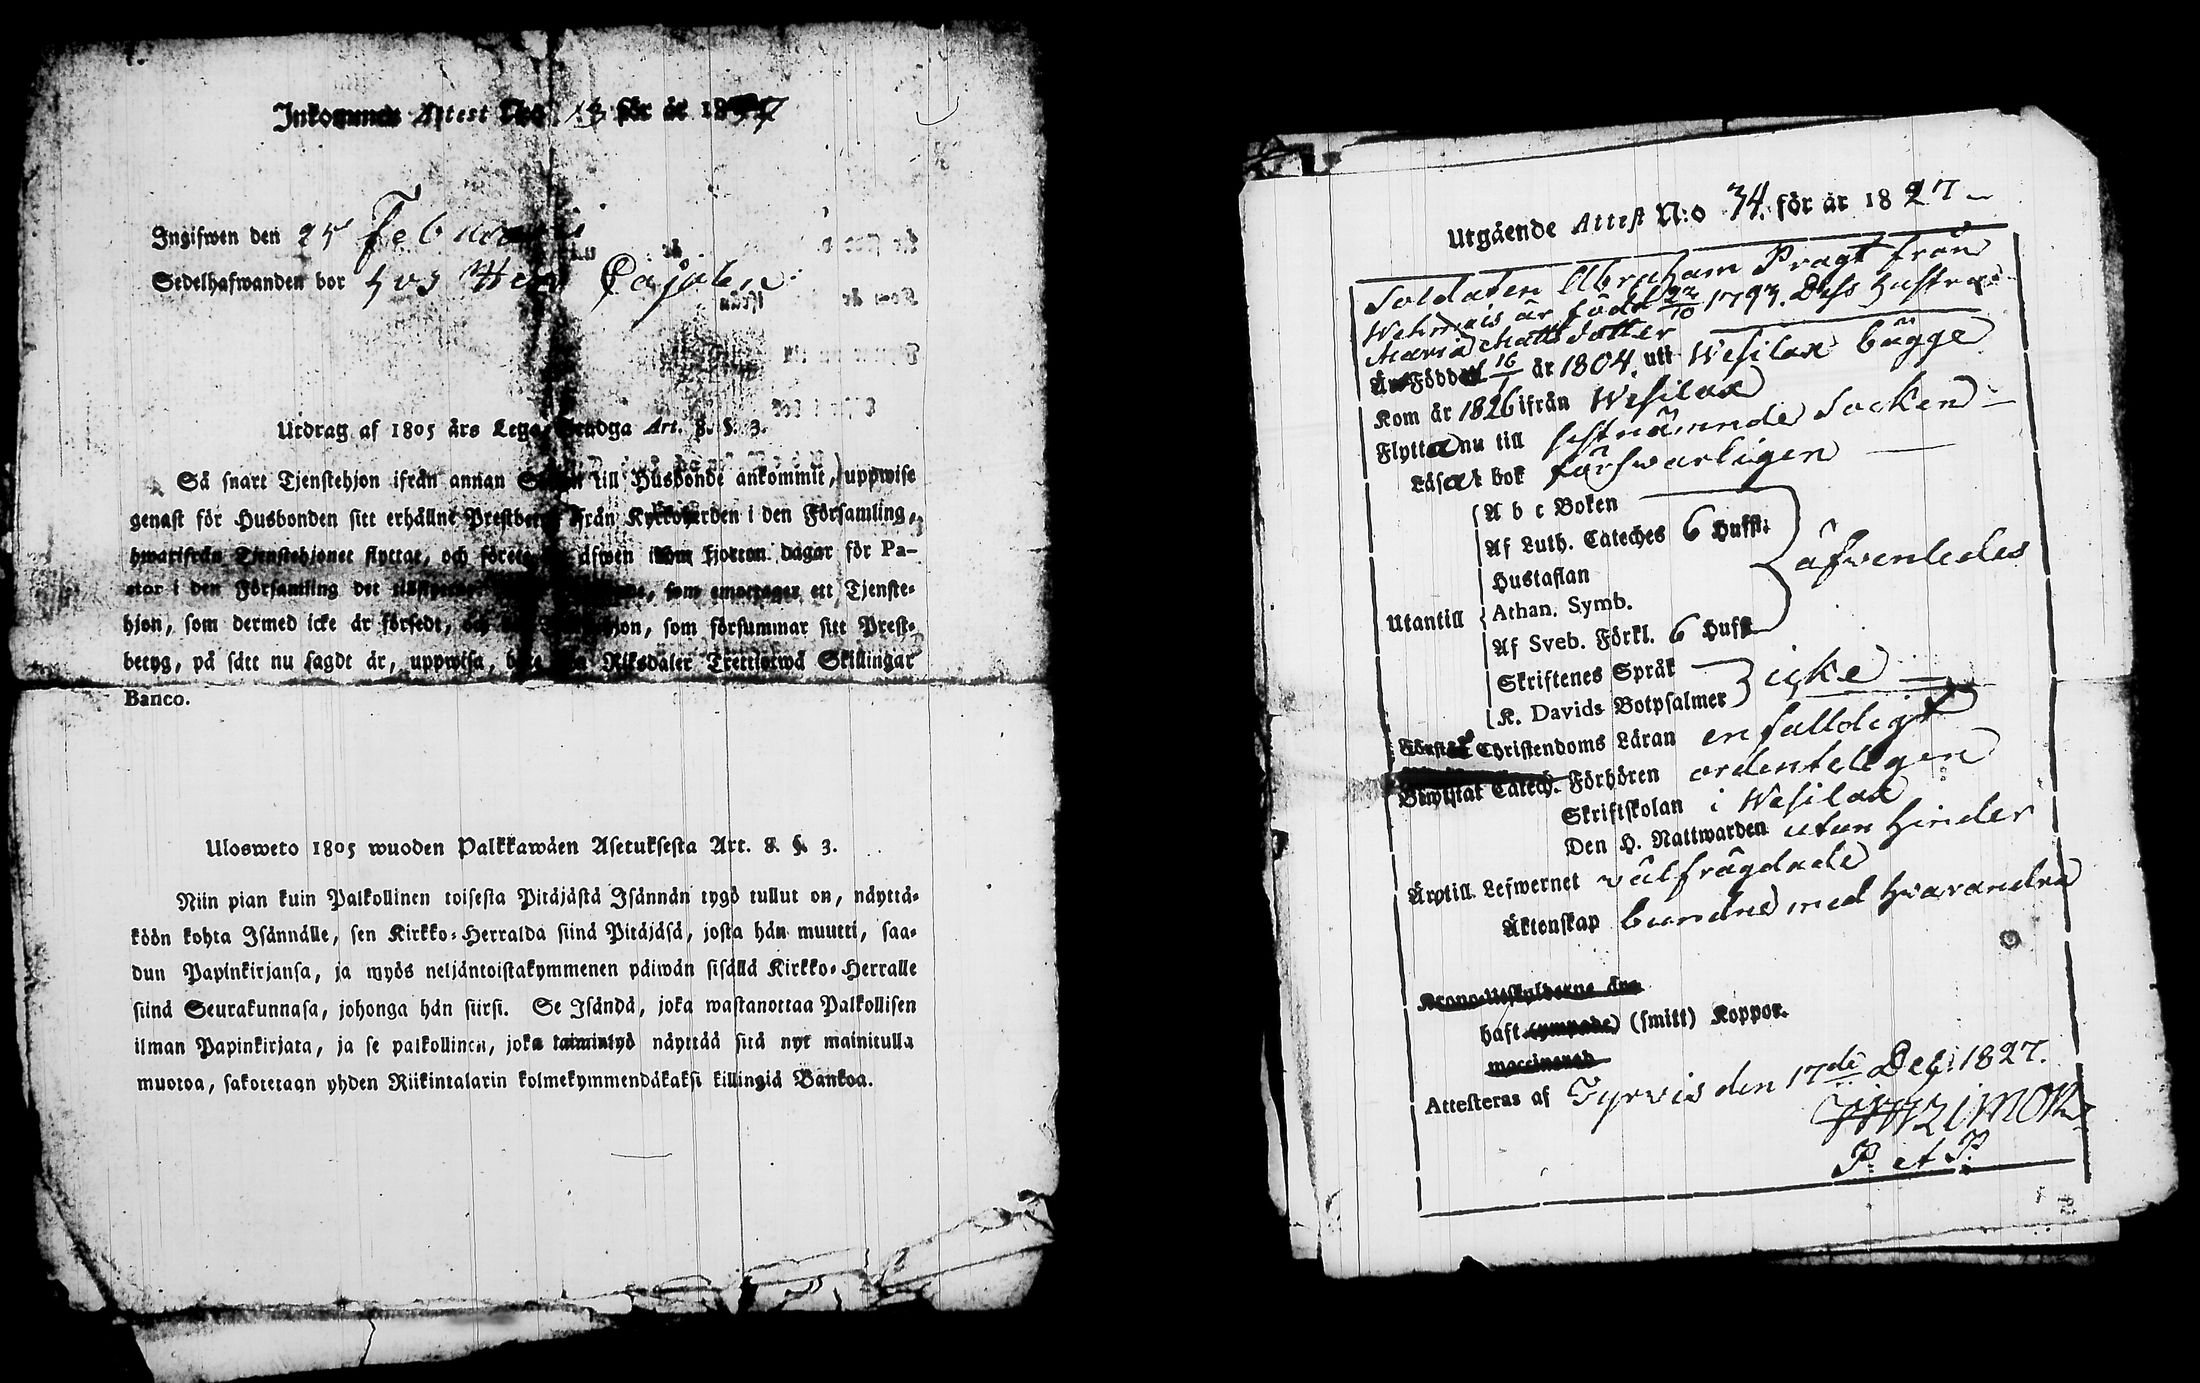 Inkommen Attest N:o 13 för år 1827
Ingifwen den 25 Februarii
Sedelhafwanden bor hos Herr Cajalen
Utdrag af 1805 års Lego-Stadga Art. 8. §. 3.
Så snart Tjenstehjon ifrån annan till Husbonde ankommit, uppwise
genast för Husbonden sitt erhållne Prestbetyg från Kyrkoherden i den Församling,
hwarifrån Tjenstehjonet flyttat, och äfwen inom fjorton dagar för Pa-
stor i den Församling det som emottager ett Tjenste-
hjon, som dermed icke är försedt, som försummar sitt Prest-
betyg, på sätt nu sagdt är, uppwisa, Riksdaler Trettiotwå Skillingar
Banco.
Ulosweto 1805 wuoden Palkkawäen Asetuksesta Art. 8. §. 3.
Niin pian kuin Palkollinen toisesta Pitäjästä Isännän tygö tullut on, näyttä-
köön kohta Isännälle, sen Kirkko-Herralda siinä Pitäjäsä, josta hän muutti, saa-
dun Papinkirjansa, ja myös neljäntoistakymmenen päiwän sisällä Kirkko-Herralle
siinä Seurakunnasa, johonga hän siirsi. Se Isändä, joka wastanottaa Palkollisen
ilman Papinkirjata, ja se palkollinen, joka laimintyö näyttää sitä nyt mainitulla
muotoa, sakotetaan yhden Riikintalarin kolmekymmendäkaksi killingiä Bankoa.
Utgående Attest N:o 34. för år 1827
Soldaten Abraham Pragt från
Wehmais är född 22/10 1793. Dess hustru
Maria Matts dotter
Är Född d 16/1 år 1804. uti Wesilax bägge
Kom år 1826 ifrån Wesilax
Flytta nu till sistnämnde Socken
Läsa i bok försvarligen
A b c Boken
Af Luth. Cateches 6 Hufst:
Hustaflan
Utantill Athan. Symb. äfvenledes
Af Sveb. Förkl. 6 Hufst
Skriftenes Språk
K. Davids Botpsalmer icke
Förstå Christendoms Läran enfalldigt
Bewistat Catech. Förhören ordenteligen
Skriftskolan i Wesilax
Den H. Nattwarden utan hinder
Äro till Lefwernet välfrägdade
Äktenskap bundne med hvarandra
Krono-Utskylderne
haft (ympade) (smitt) Koppor.
vaccinerad
Attesteras af Tyrvis den 17de Dec: 1827.
P. et P.